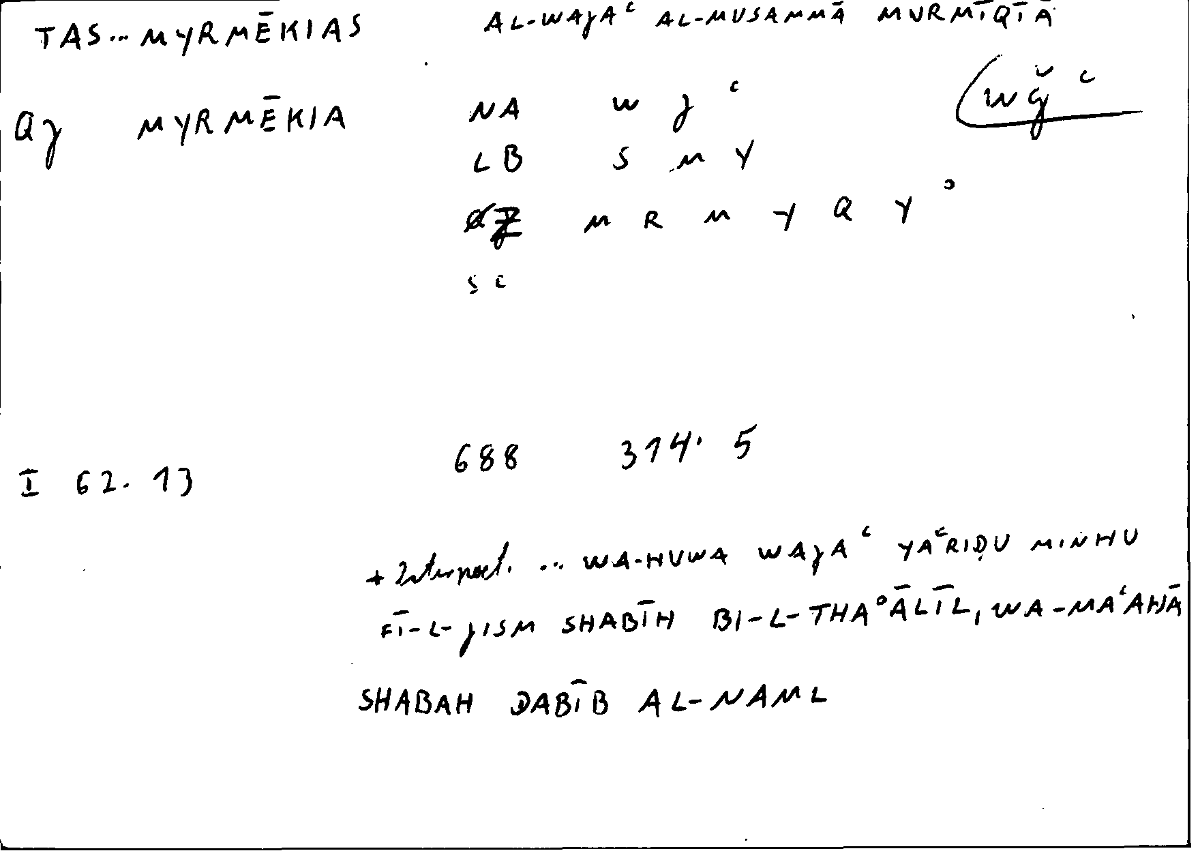 TAS... MYRMĒKIAS AL-WAJAʿ AL-MUSAMMĀ MURMĪQĪĀ
QJ MYRMĒKIA NA W J ʿ (WǦʿ
LB S M Y
QZ M R M Y Q Y ʾ
SC
I 62.13 688 314.5
+ Interpret. ... WA-HUWA WAJAʿ YAʿRIḌU MINHU
FĪ-L-JISM SHABĪH BI-L-THAʾĀLĪL, WA-MAʿAHĀ
SHABAH DABĪB AL-NAML